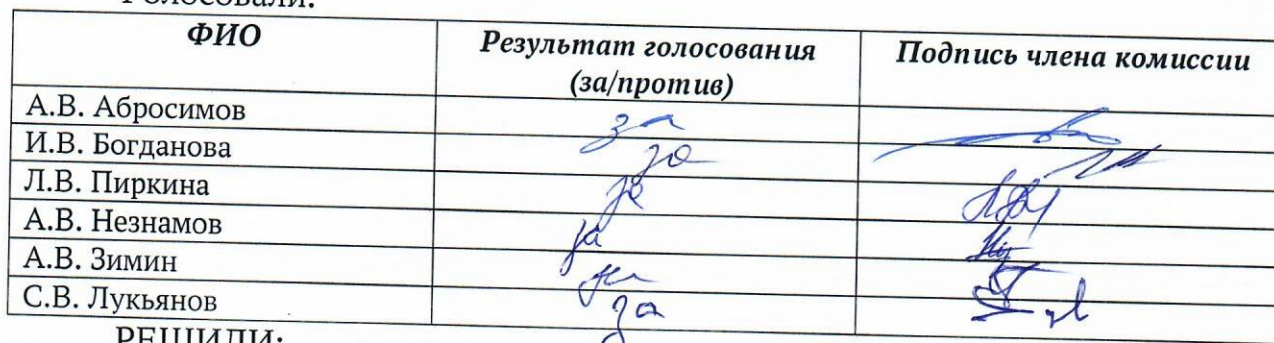 Голосовали:
ФИО Результат голосования (за/против) Подпись члена комиссии
А.В. Абросимов за
И.В. Богданова за
Л.В. Пиркина за
А.В. Незнамов за
А.В. Зимин за
С.В. Лукьянов за
РЕШИЛИ: